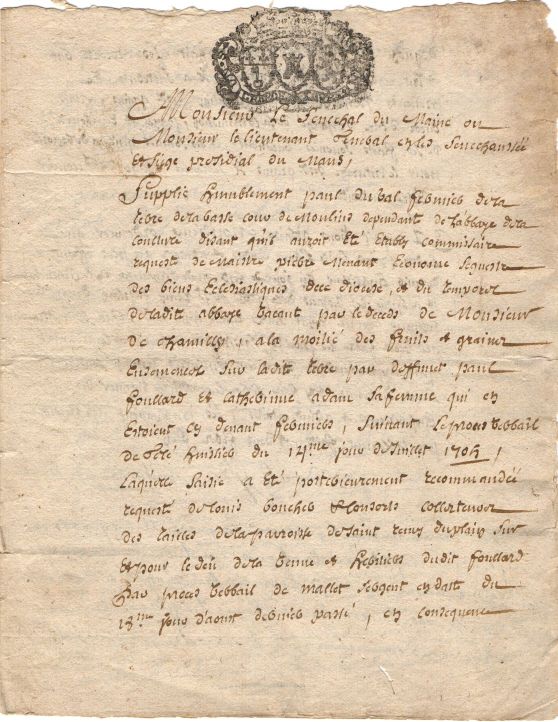 Monsieur Le Senechal du Maine ou
Monsieur le lieutenant general en la Senechaussée
et siege presidial du Mans,
Supplie humblement paul du val fermier de la
terre de la basse cour de Moulins dependant de l'abbaye de la
Couture disant qu'il auroit eté etably commissaire
request de Maistre pierre Menant Econome sequestre
des biens Eclesiastiques dece diocese, et du temporel
de ladite abbaye vacant par le deceds de Monsieur
de chamilly, a la moitié des fruits et graines
Ensemencés sur ladite terre par deffunct paul
foullard et catherinne adam sa femme qui en
estoient cy devant fermiers, suivant le proces verbail
de huissier du 14me jour de Juillet 1705,
Laquelle saisie a eté posterieurement recommandée
request de louis boucher & consorts collecteurs
des tailles de la parroisse de saint remy du plain sur
et pour le deu de la venue et heritiers dudit foullard
par proces verbail de mallet sergent en datte du
18me jour d'aoust dernier passé, en consequence